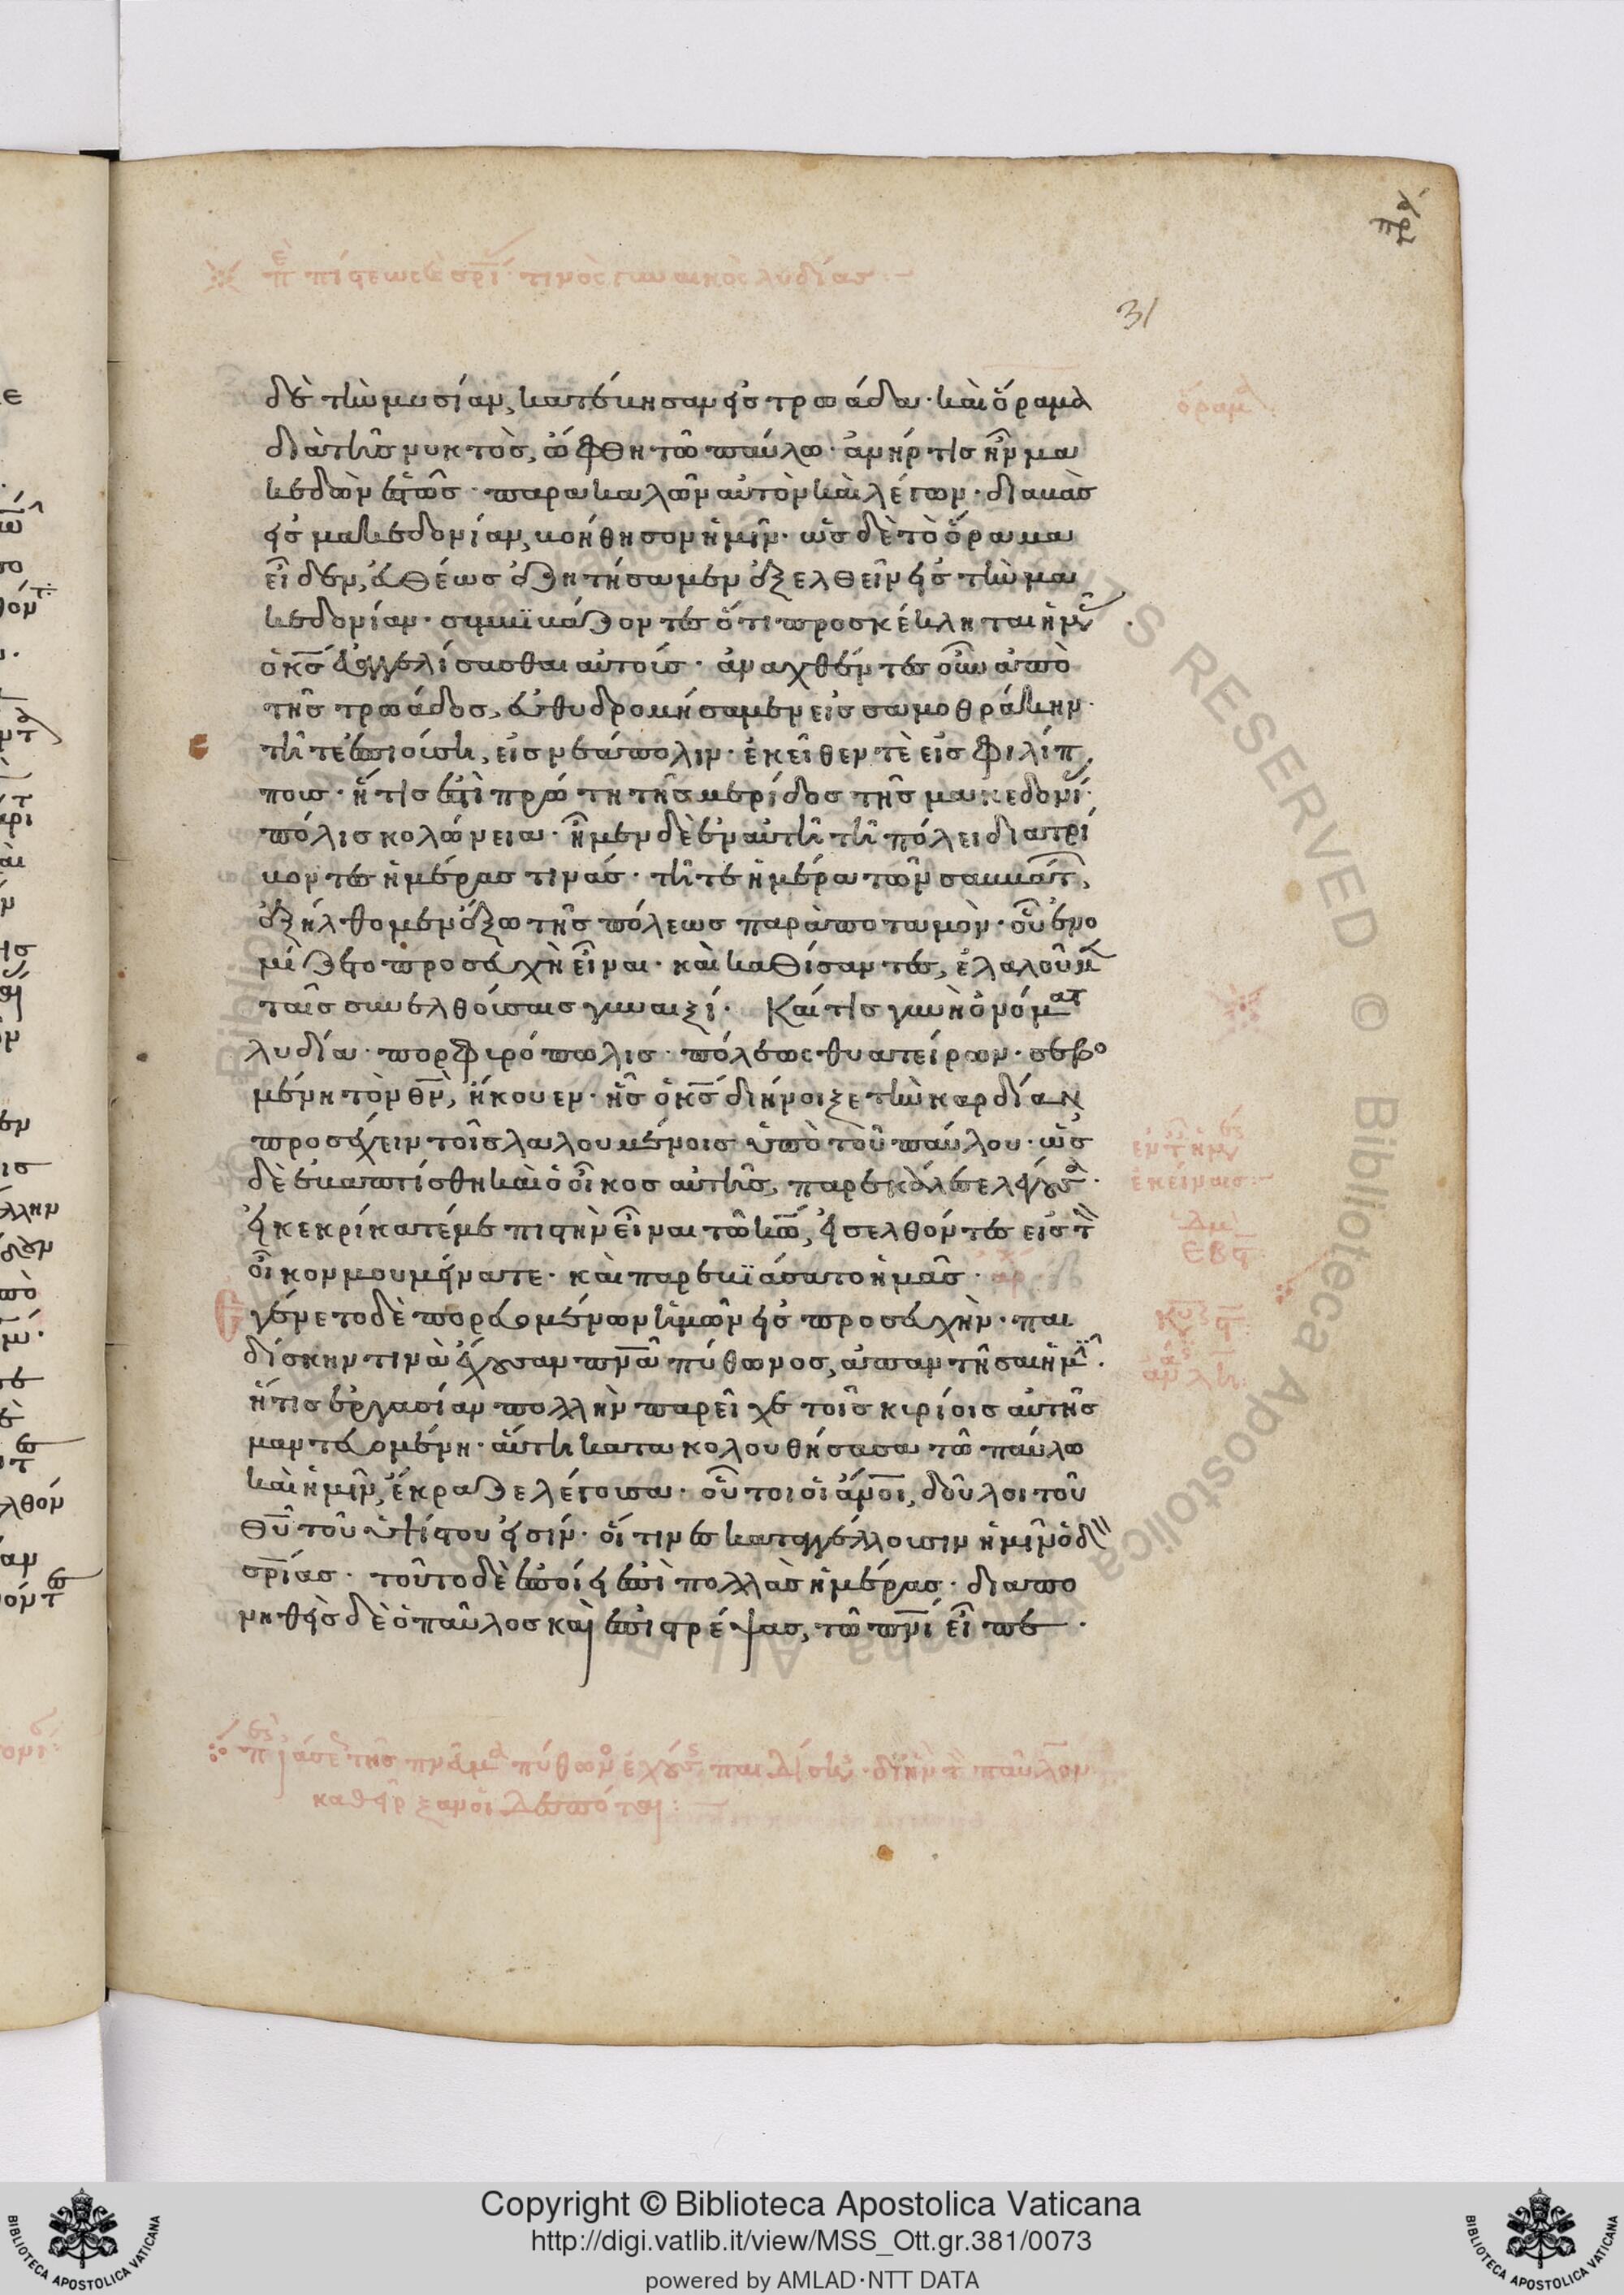 31
δὲ τὴν μυσίαν, κατέβησαν εἰς τρωάδα· καὶ ὅραμα
διὰ τῆς νυκτὸς, ὤφθη τῶ παύλω· ἀνήρ τίς ἦν μα
κεδὼν ἑστῶς· παρακαλῶν αὐτὸν καὶ λέγων· διαβὰς
εἰς μακεδονίαν, βοήθησον ἡμῖν· ὡς δὲ τὸ ὅραμα
εἶδεν, εὐθέως ἐζητήσαμεν ἐξελθεῖν εἰς τὴν μα
κεδονίαν· συμβιβάζοντες ὅτι προσκέκληται ἡμᾶς
ὁ κς εὐαγγελίσασθαι αὐτούς· ἀναχθέντες οὖν ἀπὸ
τῆς τρωάδος, εὐθυδρομήσαμεν εἰς σαμοθράκην·
τῆ τε ἐπιούση, εἰς νεάπολιν· ἐκεῖθεν τὲ εἰς φιλίπ
πους· ἥτις ἐστὶ πρώτη τῆς μερίδος τῆς μακεδονί
πόλις κολώνεια· ἦμεν δὲ ἐν αὐτῆ τῆ πόλει διατρί
βοντες ἡμέρας τινάς· τῆ τε ἡμέρα τῶν σαββάτ,
ἐξήλθομεν ἔξω τῆς πόλεως παρὰ ποταμὸν· οὗ ἐνο
μίζετο προσευχὴ εἶναι· καὶ καθίσαντες, ἐλαλοῦμεν
ταῖς συνελθούσαις γυναιξί· Καί τις γυνὴ ὀνόματ
λυδία· πορφυρόπωλις· πόλεως θυατείρων· σεβο
μένη τὸν θν, ἤκουεν· ἧς ὁ κς διήνοιξε τὴν καρδίαν
προσέχειν τοῖς λαλουμένοις ὑπὸ τοῦ παύλου· ὡς
δὲ ἐβαπτίσθη καὶ ὁ οἶκος αὐτῆς, παρεκάλεσε λέγουσα·
εἰ κεκρίκατέ με πιστὴν εἶναι τῶ κω, εἰσελθόντες εἰς τὸν
οἶκον μου μείνατε· καὶ παρεβιάσατο ἡμᾶς·
γένετο δὲ πορευομένων ἡμῶν εἰς προσευχὴν· παι
δίσκην τινὰ ἔχουσαν πνα πύθωνος, ἀπαντῆσαι ἡμῖν·
ἥτις ἐργασίαν πολλὴν παρεῖχε τοῖς κυρίοις αὐτῆς
μαντευομένη· αὕτη κατακολουθήσασα τῶ παύλω
καὶ ἡμῖν, ἔκραζε λέγουσα· οὗτοι οἱ ἄνοι, δοῦλοι τοῦ
θυ τοῦ ὑψίστου εἰσίν· οἵτινες καταγγέλλουσιν ἡμῖν ὁδὸν
σρίας· τοῦτο δὲ ἐποίει ἐπὶ πολλὰς ἡμέρας· διαπο
νηθεὶς δὲ ὁ παῦλος καὶ ἐπιστρέψας, τῶ πνι εἶπε·
Copyright © Biblioteca Apostolica Vaticana
http://digi.vatlib.it/view/MSS_Ott.gr.381/0073
powered by AMLAD·NTT DATA
BIBLIOTECA APOSTOLICA VATICANA
BIBLIOTECA APOSTOLICA VATICANA